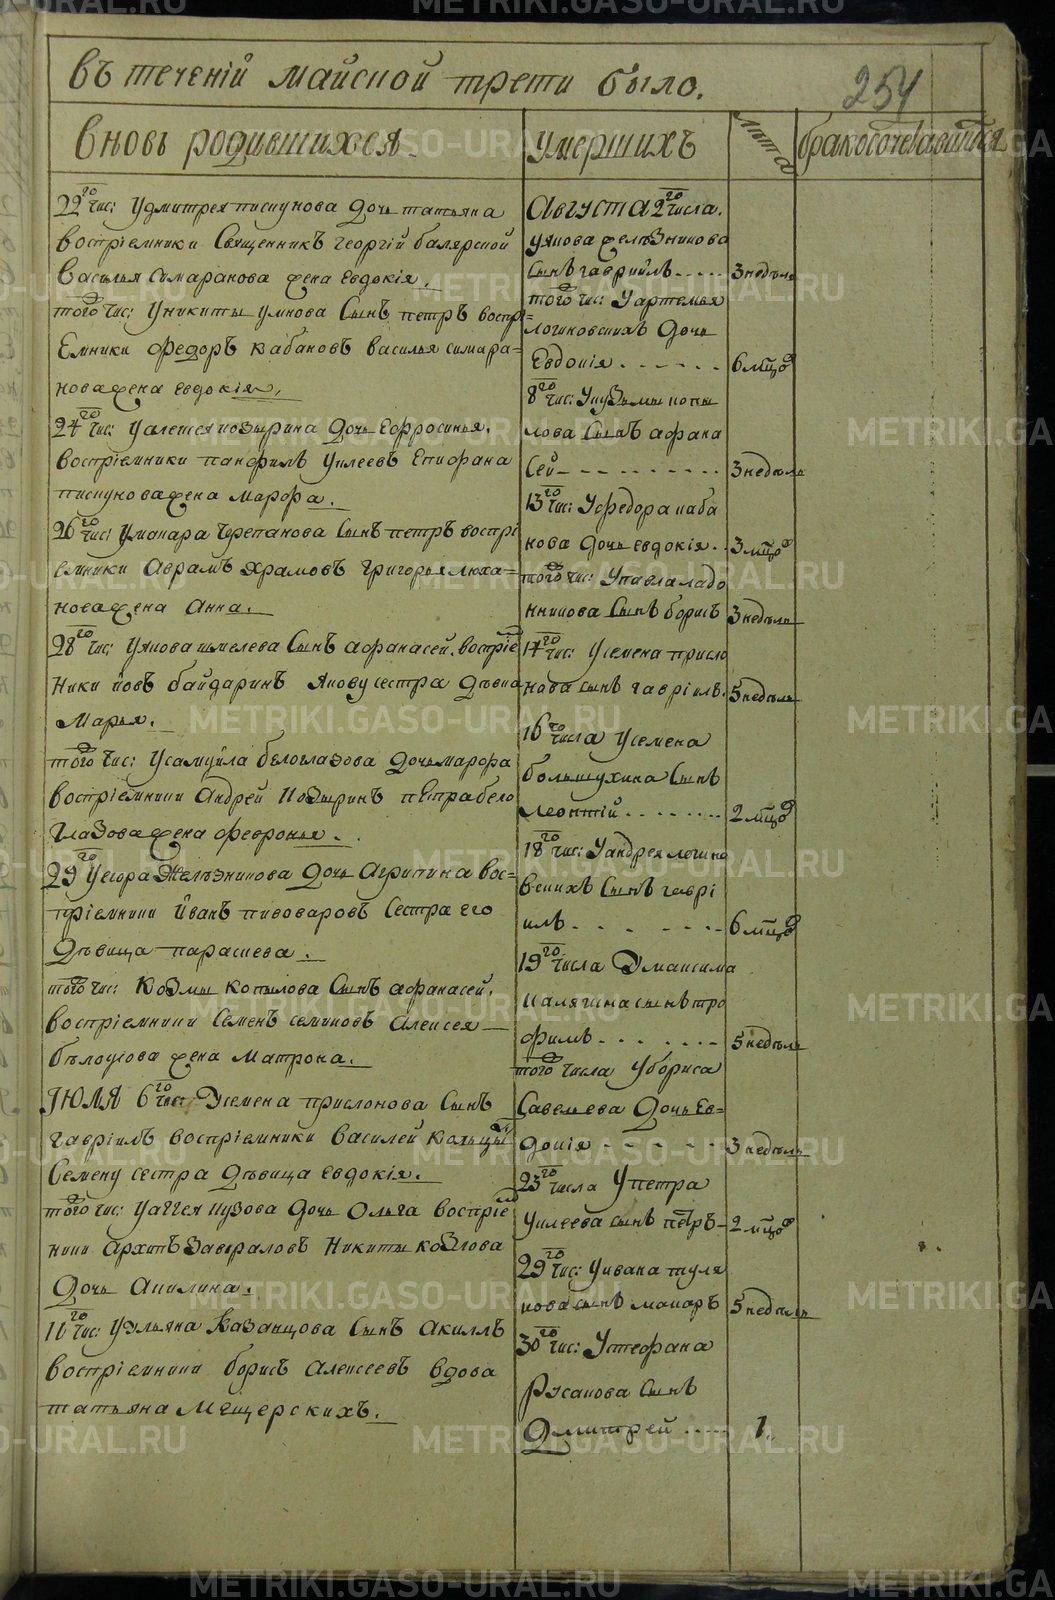 въ теченїй майской трети было.
254
вновь родившихся.
умершихъ
лѣта
бракосочетавшихся
22го чис: У дмитрея пискунова дочь татьяна
востріемники Священникъ георгій балярской
Василья Симаранова жена евдокїя.
того чис: У никиты умнова Сынъ петръ воспрі=
Емники федоръ кабановъ василья симара=
нова жена евдокїя.
24го чис: У алеѯея козырина дочь Ефросинья.
востріемники панфилъ Уилеевъ Епифана
пискунова жена марфа.
26го чис: У макара Черепанова Сынъ петръ воспрі
емники Аврамъ храмовъ григорья люха=
нова жена Анна.
28го чис: У якова шмелева Сынъ афанасей. востріе
ники йовъ байдаринъ якову сестра дѣвица
Марья.
того чис: У самуйла белоглазова дочь марфа
востріемники Андрей Козыринъ петра бело
глазова жена февронья.
29 У егора Желѣзникова дочь Агрипина вос=
пріемники Иванъ пивоваровъ Сестра его
дѣвица парасиева.
того чис: Козмы копылова Сынъ афанасей.
востріемники Семенъ семиковъ Алексея
бѣлоусова жена Матрона.
ІЮЛЯ 6го чис: У семена прислонова Сынъ
гавріилъ востріемники василей кальцы
Семену сестра дѣвица евдокія.
того чис: У аггея кузова дочь Ольга воспріе
ники Архипъ Завораловъ Никиты козлова
дочь Акилина.
11го чис: У ульяна Казанцова Сынъ Акиллъ
востріемники борисъ Алексеевъ вдова
татьяна мещерскихъ.
Августа 2го числа.
У якова желѣзникова
сынъ гаврийлъ 3 недѣль
того чис: У артемья
логиновскихъ дочь
Евдокія 6 мѣцов
8го чис: У кузьмы копы
лова Сынъ афана
сей 3 недѣль
13го чис: У федора каба
нова дочь евдокія 3 мѣцов
того чис: У павла ладо
нникова Сынъ борисъ 3 недѣль
14го чис: У семена присло
нова сынъ гавріилъ. 5 недѣль
16го числа У семена
большухина Сынъ
леонтій 2 мѣцов
18го чис: У андрея логино
вскихъ Сынъ гаврі
илъ 6 мѣцов
19го числа У максима
калягина сынъ тро
фимъ 5 недѣль
того числа У бориса
Савельева дочь Ев=
докія 3 недѣль
23го числа У петра
Уилеева сынъ петръ 2 мѣцов
29го чис: У ивана туля
кова сынъ макаръ 5 недѣль
30го чис: У стефана
Русакова Сынъ
дмитрей 1.
METRIKI.GASO-URAL.RU